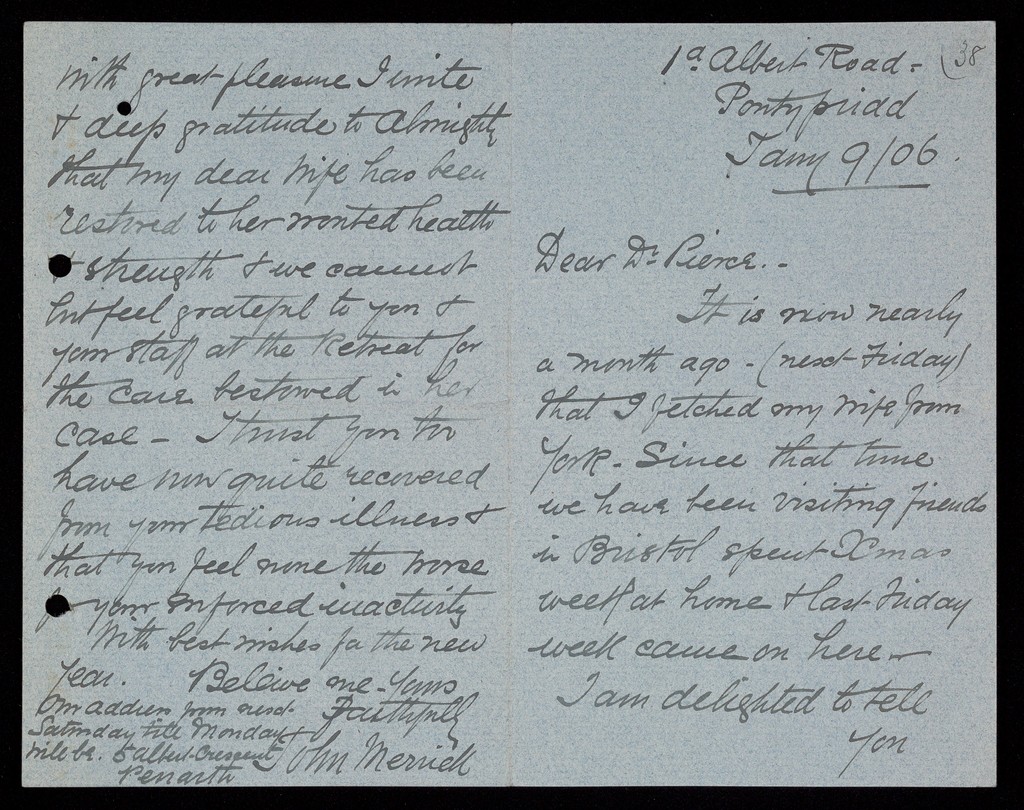 38
1a Albert Road -
Pontypridd
Jany 9/06.
Dear Dr Pierce. -
It is now nearly
a month ago - (next Friday)
that I fetched my wife from
York - Since that time
we have been visiting friends
in Bristol spent Xmas
week at home & last Friday
week came on here -
I am delighted to tell
you
With great pleasure I write
& deep gratitude to Almighty
that my dear wife has been
restored to her wonted health
& strength & we cannot
but feel grateful to you &
your staff at the Retreat for
the care bestowed in her
case - I trust you too
have now quite recovered
from your tedious illness &
that you feel none the worse
for your enforced inactivity
With best wishes for the new
year. Beleive me - Yours
Faithfully
John Merrick
Our address from next
Saturday till Monday
will be. 5 Albert Crescent
Penarth